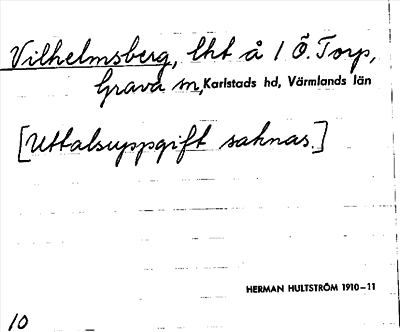 Vilhelmsberg, lht å 1 Ö. Torp,
Grava sn, Karlstads hd, Värmlands län
[Uttalsuppgift saknas.]
HERMAN HULTSTRÖM 1910-11
10